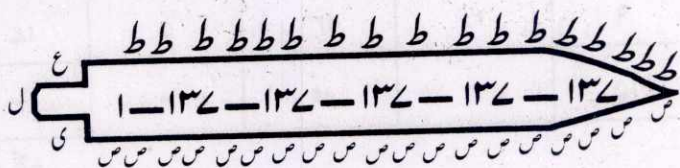 ط ط ط ط ط ط ط ط ط ط ط ط ط ط ط ط ط
ع
ل ۱ — ۱۳۷ — ۱۳۷ — ۱۳۷ — ۱۳۷ — ۱۳۷ ص
ی
ص ص ص ص ص ص ص ص ص ص ص ص ص ص ص ص ص ص